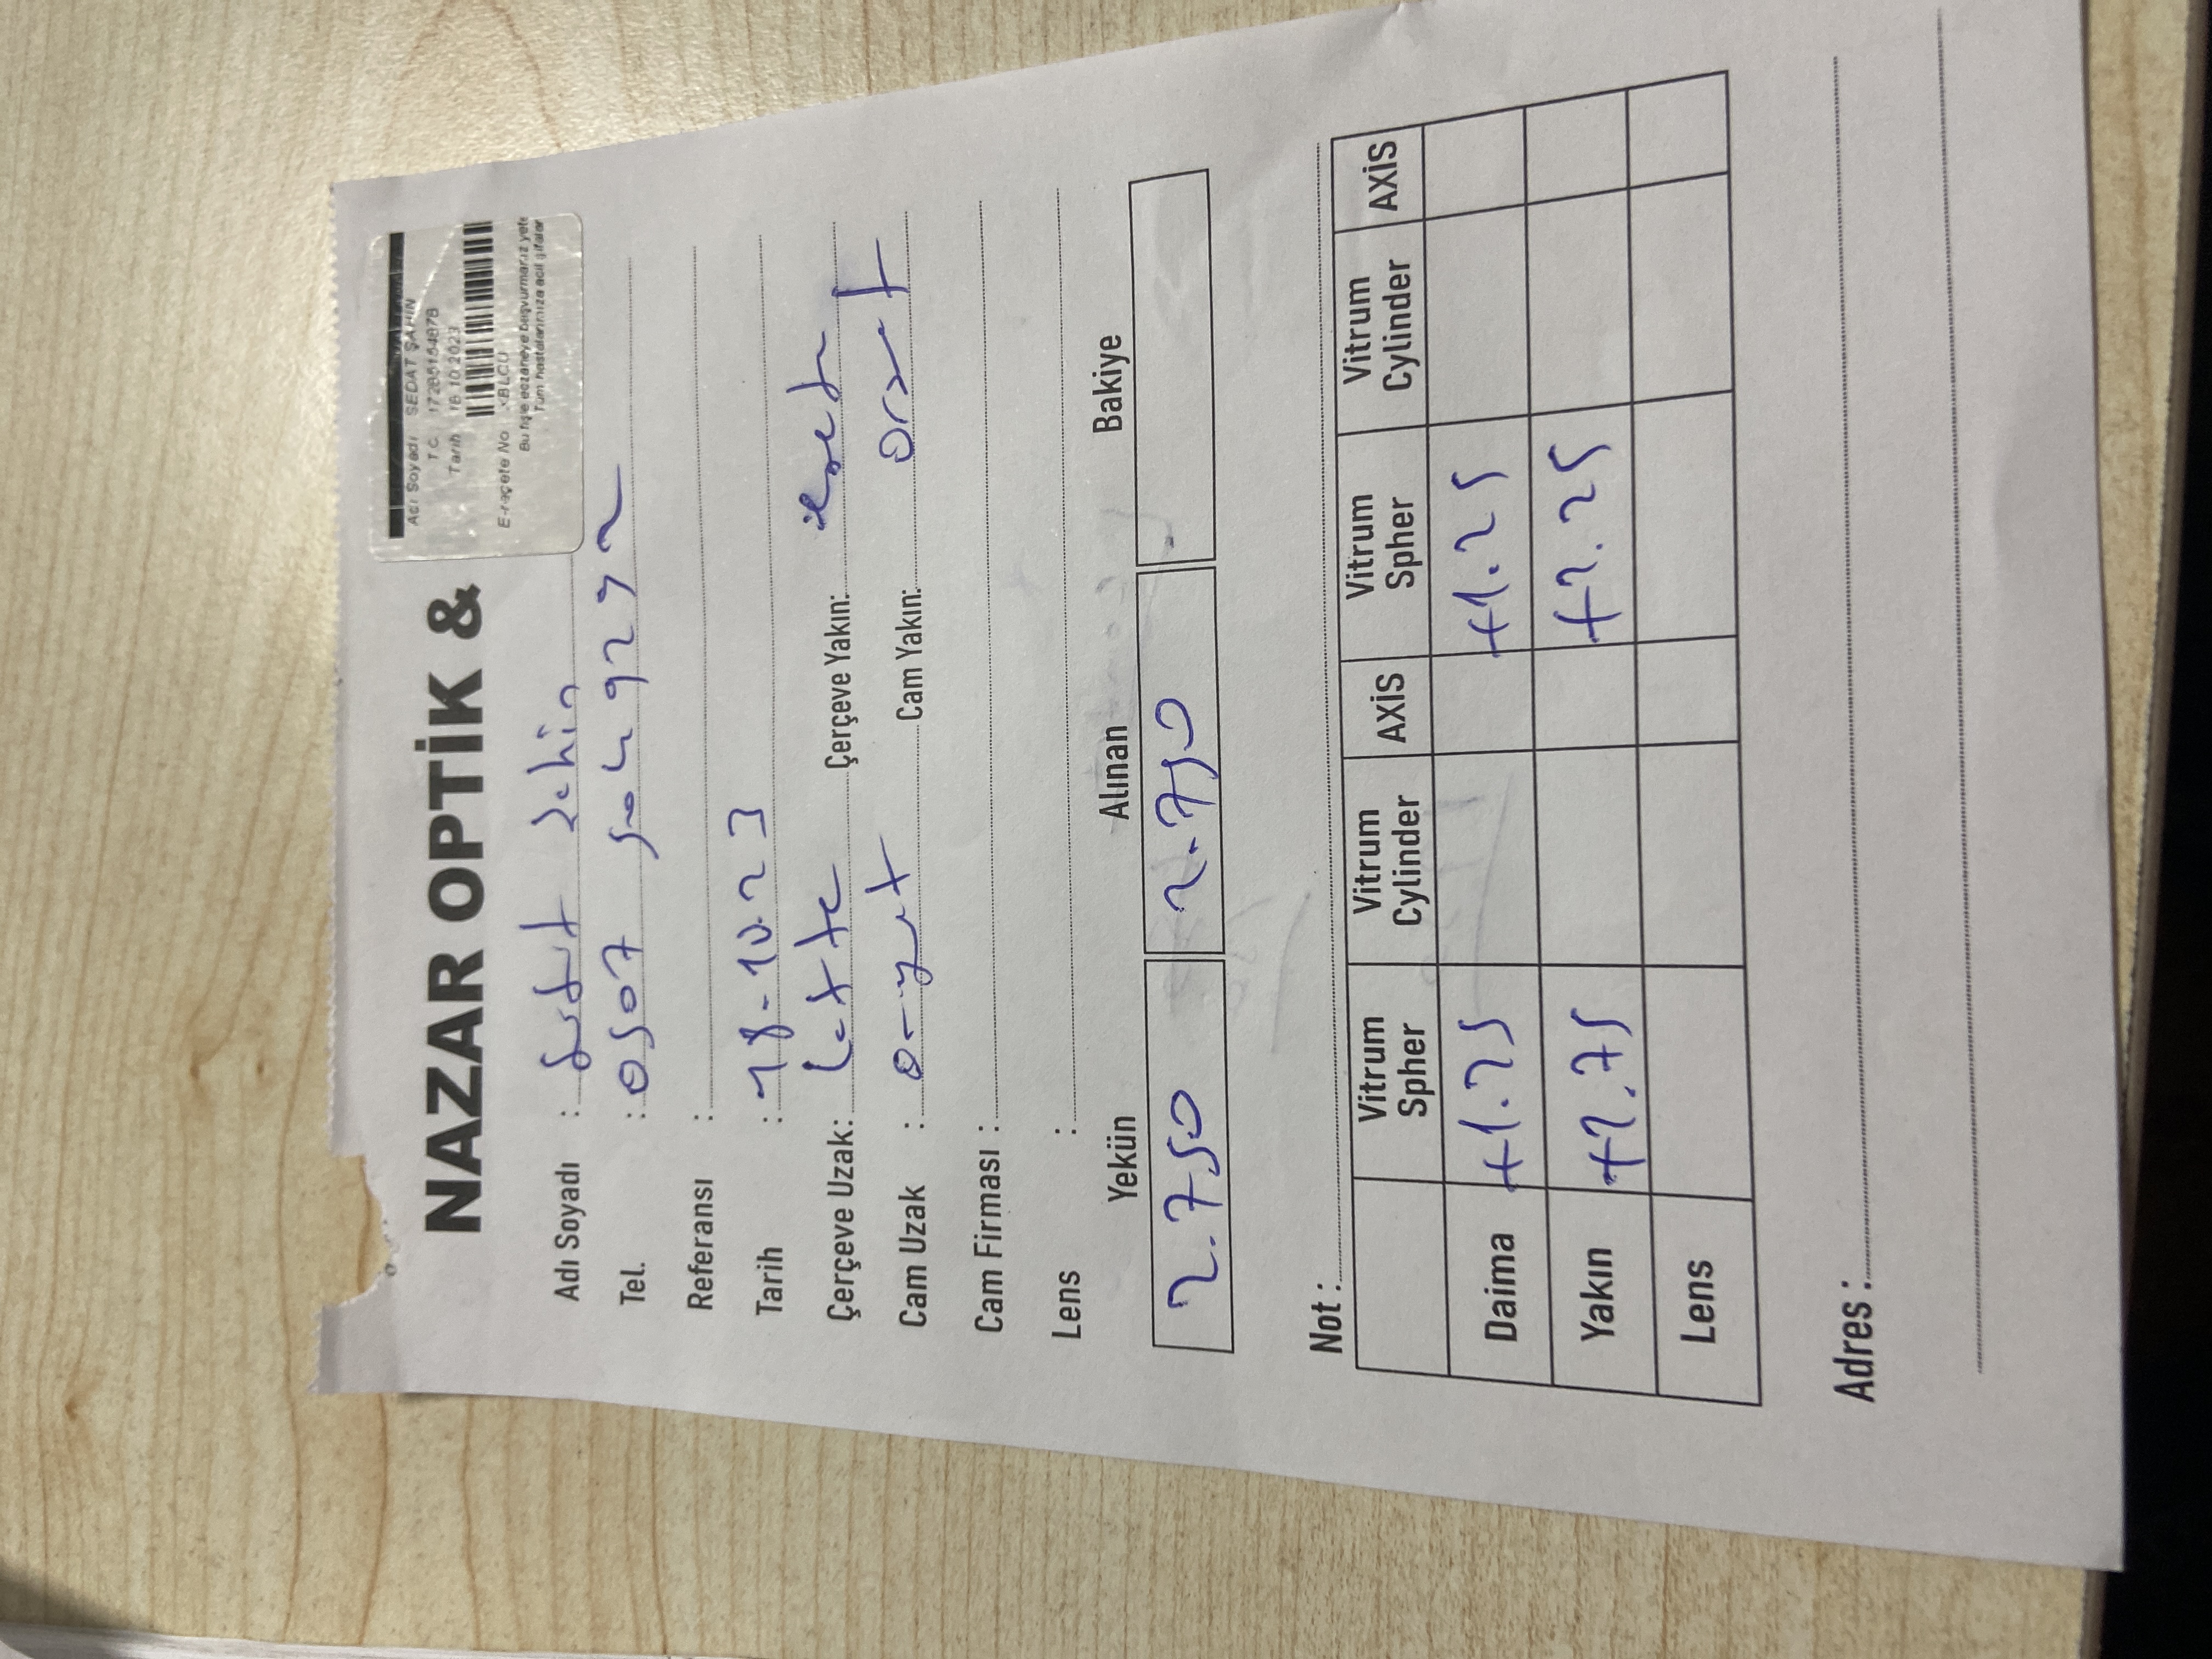 NAZAR OPTİK &
Adı Soyadı SEDAT ŞAHİN
T.C. 17285154878
Tarih 18.10.2023
E-reçete No
Bu fişle eczaneye başvurmanız yete
Tüm hastalarımıza acil şifalar
Adı Soyadı : Sedat Şahin
Tel. : 0507 504 9292
Referansı :
Tarih : 18-10.23
Çerçeve Uzak: Çerçeve Yakın:
Cam Uzak : Cam Yakın:
Cam Firması :
Lens :
Yekün Alınan Bakiye
2.750 2.750
Not :
Vitrum Spher Vitrum Cylinder AXİS Vitrum Spher Vitrum Cylinder AXİS
Daima +1.25 +1.25
Yakın +2.75 +2.25
Lens
Adres :